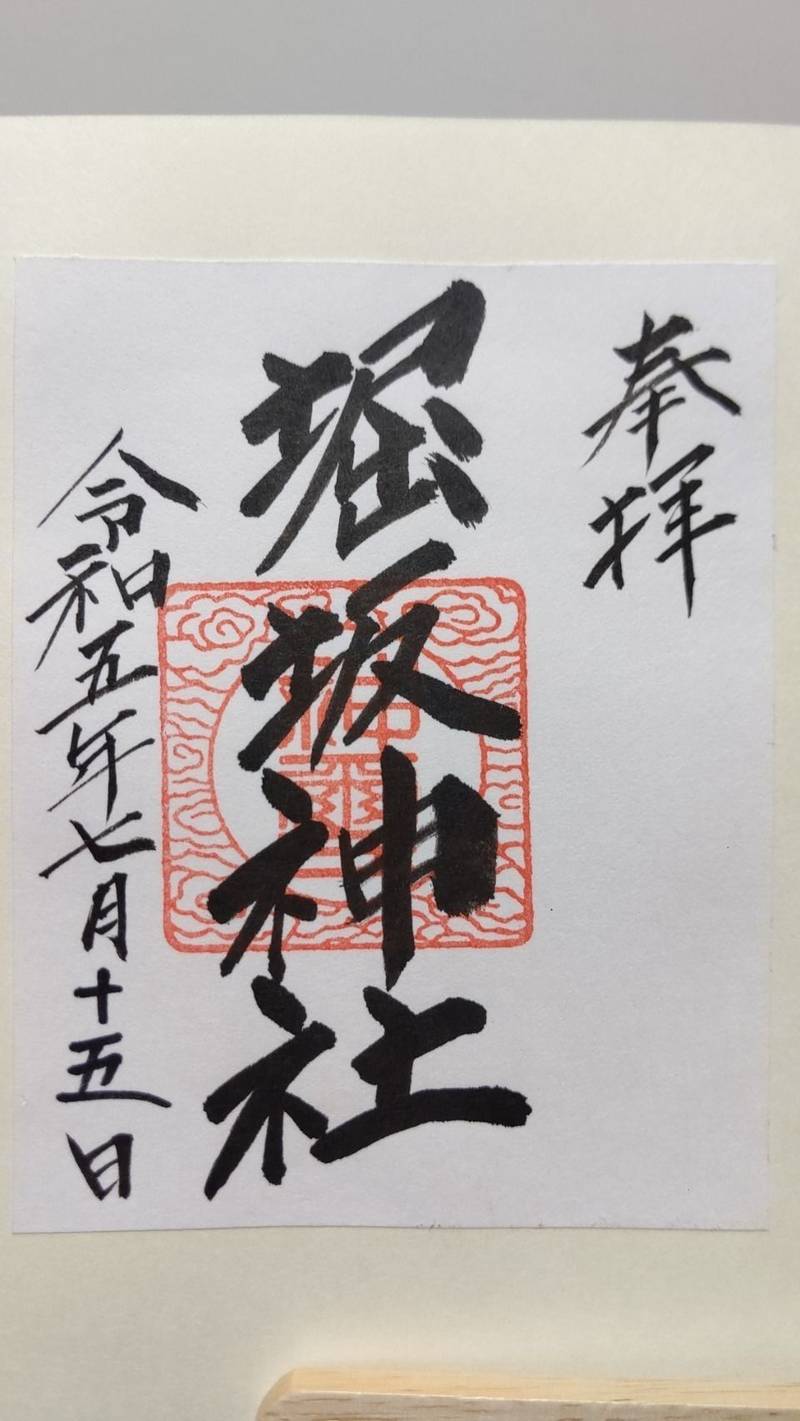 奉拝
堀坂神社
令和五年七月十五日